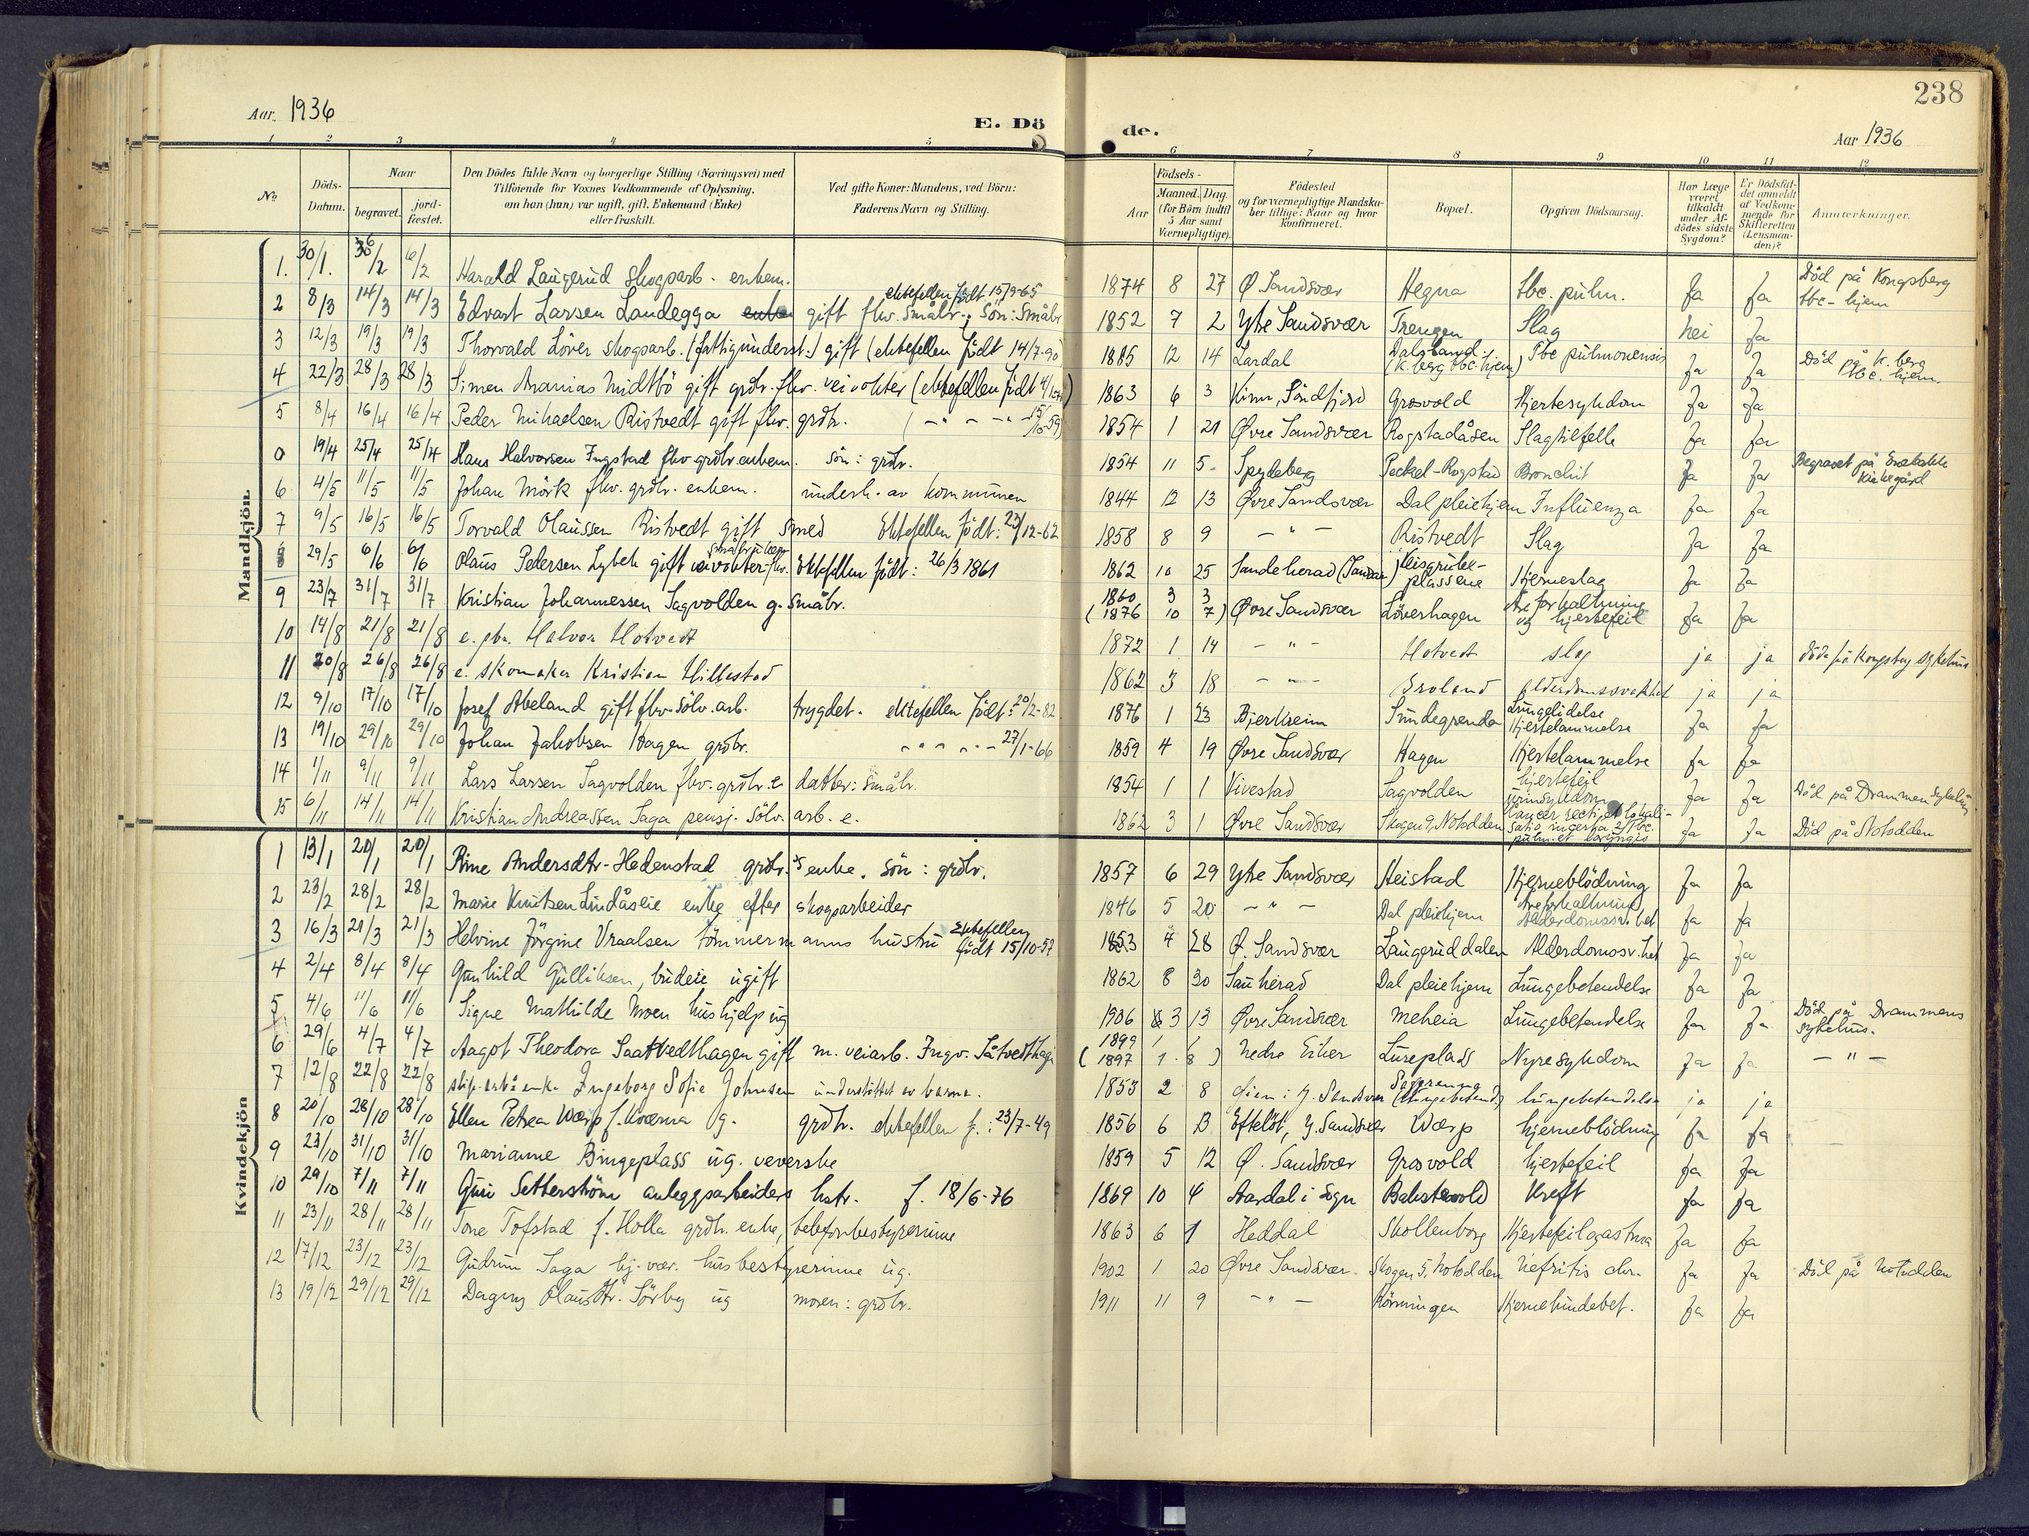 238
Aar 1936
E. Dö
de.
Aar 1936
1 2 3 4 5 6 7 8 9 10 11 12
No
Döds-Datum.
Naar
begravet.
jord-fæstet.
Den Dödes fulde Navn og borgerlige Stilling (Næringsvei) med
Tilföiende for Voxnes Vedkommende af Oplysning,
om han (hun) var ugift, gift, Enkemand (Enke)
eller fraskilt.
Ved gifte Koner: Mandens, ved Börn:
Faderens Navn og Stilling.
Födsels-
Aar
Maaned. Dag.
(for Börn indtil
5 Aar samt
Værnepligtige).
Födested
og for værnepligtige Mandska-
ber tillige: Naar og hvor
konfirmeret.
Bopæl.
Opgiven Dödsaarsag.
Har Læge
været
tilkaldt
under Af-
dödes sidste
Sygdom?
Er Dödsfal-
det anmeldt
af Vedkom-
mende for
Skifteretten
(Lensman-
den)?
Anmærkninger.
Mandkjön.
1. 30/1. 6/2 6/2 Harald Laugerud skogsarb. enkem. 1874 8 27 Ø Sandsvær Hegna tbc. pulm. ja ja Död på Kongsberg tbc-hjem
2 8/3 14/3 14/3 Edvart Larsen Landegga gift fhv. småbr. ektefellen født 15/9-65 Sön: Småbr 1852 7 2 Ytre Sandsvær Trengen Slag nei ja
3 12/3 19/3 19/3 Thorvald Löver skogsarb. (fattigunderst.) gift (ektefellen født 14/7-90) 1885 12 14 Lardal Dalsland (K.berg tbc. hjem) Tbc pulmonensis ja ja Död på K.berg tbc. hjem.
4 22/3 28/3 28/3 Simen Ananias Midtbö gift grdbr. fhv. veivokter (ektefellen født 1863 6 3 Kinn, Söndfjord Grosvold Hjertesykdom ja ja
5 8/4 16/4 16/4 Peder Mikaelsen Ristvedt gift fhv. grdbr. ( - " - - " - 15/10-59) 1854 1 21 Øvre Sandsvær Rogstadåsen Slagtilfelle ja ja
0 19/4 25/4 25/4 Hans Halvorsen Ingstad fhv grdbr enkem. sön: grdbr. 1854 11 5 Spydeberg Peckel-Rogstad Bronchit ja ja Begravet på kirkegård
6 4/5 11/5 11/5 Johan Mörk fhv. grdbr. enkem. underh. av kommunen 1844 12 13 Øvre Sandsvær Dal pleiehjem Influenza ja ja
7 9/5 16/5 16/5 Torvald Olaussen Ristvedt gift smed Ektefellen født: 23/12-62 1858 8 9 - " - Ristvedt Slag ja ja
8 29/5 6/6 6/6 Olaus Pedersen Lybek gift veivokter fhv. Ektefellen født: 26/3 1861 1862 10 25 Sandeherad Hjerneslag ja ja
9 23/7 31/7 31/7 Kristian Johannessen Sagvolden g. småbr. 1860 3 3 (1876 10 7) Øvre Sandsvær Löverhagen Åreforkalkning og hjertefeil ja ja
10 14/8 21/8 21/8 e. gbr. Halvor Hotvedt 1872 1 14 - " - Hotvedt slag ja ja døde på Kongsberg sykehus
11 20/8 26/8 26/8 e. skomaker Kristian Hillestad 1862 3 18 - " - alderdomssvakhet ja ja
12 9/10 17/10 17/10 Josef Abeland gift fhv. sölv. arb. trygdet. ektefellen født: 20/2-82 1876 1 23 Bjerkreim Sundegrenda Lungelidelse Hjertelammelse ja ja
13 19/10 29/10 29/10 Johan Jakobsen Hagen grdbr. - " - " - 27/1-66 1859 4 19 Øvre Sandsvær Hagen Hjertelammelse ja ja
14 1/11 9/11 9/11 Lars Larsen Sagvolden fhv. grdbr. e datter: småbr. 1854 1 1 Vivestad Sagvolden hjertefeil urinsykdom ja ja Död på Drammen Sykehus
15 6/11 14/11 14/11 Kristian Andreassen Saga pensj. Sölv. arb. e. 1862 3 1 Øvre Sandsvær Skogen 9, Notodden Cancer recti ja ja Död på Notodden
Kvindekjön
1 13/1 20/1 20/1 Rine Andersdtr. Hedenstad grdbr.s enke. sön: grdbr. 1857 6 29 Ytre Sandsvær Heistad Hjerneblödning ja ja
2 23/2 28/2 28/2 Marie Knutsen Lindåslie enke efter skogsarbeider 1846 5 20 - " - Dal pleiehjem Åreforkalkning Alderdomssv.het ja ja
3 16/3 21/3 21/3 Helvine Jörgine Vraalsen tömmermanns hustru Ektefellen født 15/10-57 1853 4 28 Ø. Sandsvær Laugeruddalen Alderdomssv.het ja ja
4 2/4 8/4 8/4 Gunhild Gulliksen, budeie ugift 1862 8 30 Sauherad Dal pleiehjem Lungebetendelse ja ja
5 4/6 11/6 11/6 Signe Mathilde Moen hushjelp ug 1906 3 13 Øvre Sandsvær Meheia Lungebetendelse ja ja Död på Drammens sykehus.
6 29/6 4/7 4/7 Aagot Theodora Saattvedthagen gift m. veiarb. Ingv. Såtvedthagen 1899 1 1 (1897 1 8) Nedre Eiker Lureplass Nyresykdom ja ja - " -
7 12/8 22/8 22/8 enke Ingeborg Sofie Johnsen understøttet av barna. 1853 2 8 Øien i Y. Sandsvær lungebetendelse ja ja
8 20/10 28/10 28/10 Ellen Petrea Wærp f. Kværna g. grdbr. ektefellen f.: 23/7-49 1856 6 13 Efteløt, Y. Sandsvær Wærp hjerneblödning ja ja
9 23/10 31/10 31/10 Marianne Bingeplass ug. veverske 1859 5 12 Ø. Sandsvær Grosvold hjertefeil ja ja
10 29/10 7/11 7/11 Guri Setterström anleggsarbeiders hstr. f. 18/6-76 1869 10 4 Aardal i Sogn Bakstevold Kreft ja ja
11 23/11 28/11 28/11 Tone Tofstad f. Holla grdbr. enke, telefonbestyrerinne 1863 6 1 Heddal Skollenborg Hjertefeil og astma ja ja
12 17/12 23/12 23/12 Gudrun Saga hj. vær. husbestyrerinne ug. 1902 1 20 Øvre Sandsvær Skogen 9, Notodden Nefritis chr. ja ja Död på Notodden
13 19/12 29/12 29/12 Dagny Olausdtr. Sörby ug moren: grdbr. 1911 11 9 - " - Rönningen Hjernehindebet. ja ja